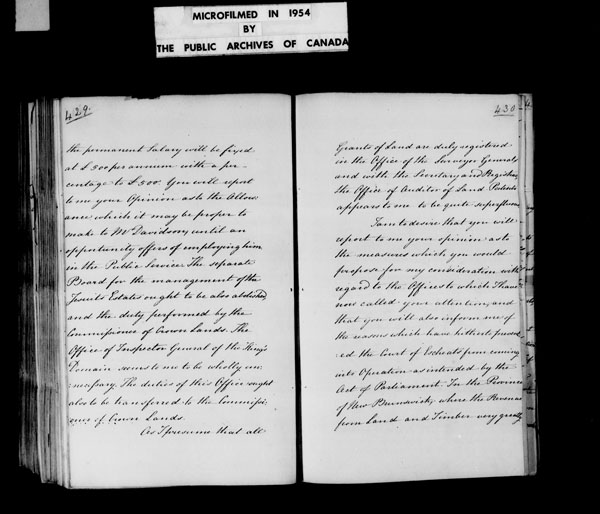 MICROFILMED IN 1954
BY
THE PUBLIC ARCHIVES OF CANADA
429.
the permanent Salary will be fixed
at £500 per annum with a per
centage to £300. You will report
to me your Opinion as to the Allow
ance which it may be proper to
make to Mr Davidson, until an
opportunity offers of employing him
in the Public Service. The separate
Board for the management of the
Jesuits Estates ought to be also abolished
and the duty performed by the
Commissioner of Crown Lands. The
Office of Inspector General of the King's
Domain seems to me to be wholly un
necessary. The duties of this Office ought
also to be transferred to the Commissi
oner of Crown Lands.
As I presume that all
430
Grants of Land are duly registered
in the Office of the Surveyor General
and with the Secretary and Registrar
the Office of Auditor of Land Patents
appears to me to be quite superfluous
I am to desire that you will
report to me your opinion as to
the measures which you would
propose for my consideration with
regard to the Offices to which I have
now called your attention, and
that you will also inform me of
the reasons which have hitherto prevent
ed the Court of Escheats from coming
into Operation as intended by the
Act of Parliament. In the Province
of New Brunswick, where the Revenue
from Land and Timber very greatly